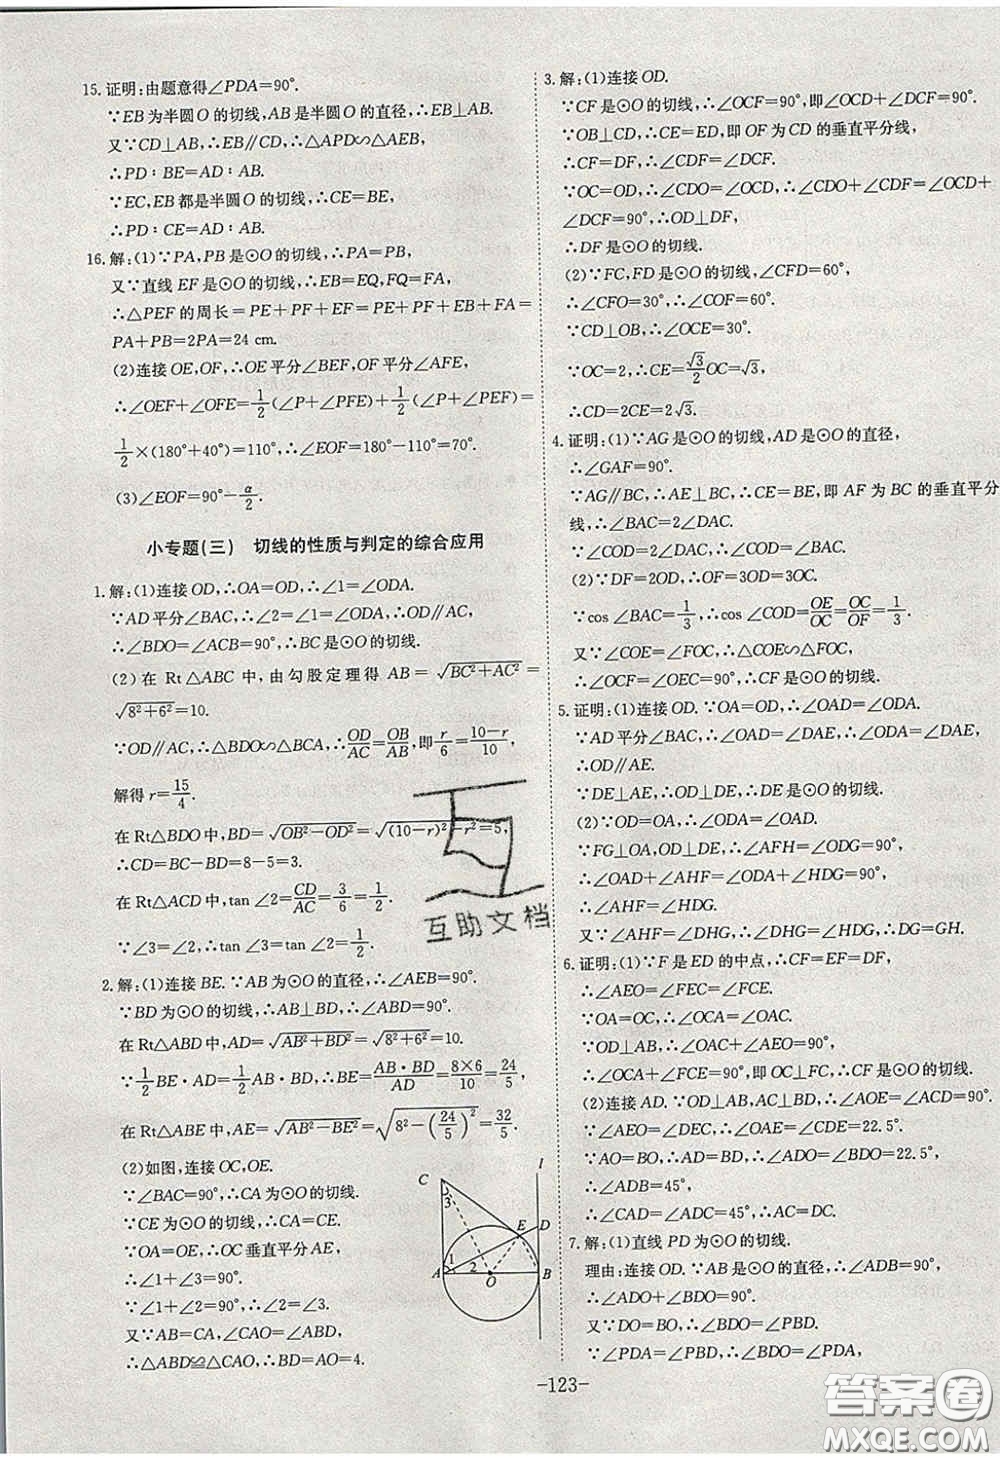 15. 证明:由题意得∠PDA=90°.
∵EB为半圆O的切线,AB是半圆O的直径,∴EB⊥AB.
又∵CD⊥AB,∴EB∥CD,∴△APD∽△AEB,
∴PD∶BE=AD∶AB.
∵EC,EB都是半圆O的切线,∴CE=BE,
∴PD∶CE=AD∶AB.
16. 解:(1)∵PA,PB是⊙O的切线,∴PA=PB,
又∵直线EF是⊙O的切线,∴EB=EQ,FQ=FA,
∴△PEF的周长=PE+PF+EF=PE+PF+EB+FA=
PA+PB=2PA=24 cm.
(2)连接OE,OF,∴OE平分∠BEF,OF平分∠AFE,
∴∠OEF+∠OFE=1/2(∠P+∠PFE)+1/2(∠P+∠PEF)=
1/2×(180°+40°)=110°,∴∠EOF=180°−110°=70°.
(3)∠EOF=90°−α/2.
小专题(三) 切线的性质与判定的综合应用
1. 解:(1)连接OD,∴OA=OD,∴∠1=∠ODA.
∵AD平分∠BAC,∴∠2=∠1=∠ODA,∴OD∥AC,
∴∠BDO=∠BAC=90°,∴BC是⊙O的切线.
(2)在Rt△ABC中,由勾股定理得AB=√(BC²+AC²)=
√(8²+6²)=10.
∵OD∥AC,∴△BDO∽△BCA,∴OD/AC=OB/AB,即r/6=(10−r)/10,
解得r=15/4.
在Rt△BDO中,BD=√(OB²−OD²)=√((10−r)²−r²)=5,
∴CD=BC−BD=8−5=3.
在Rt△ACD中,tan∠2=CD/AC=3/6=1/2.
∵∠3=∠2,∴tan∠3=tan∠2=1/2.
2. 解:(1)连接BE.∵AB为⊙O的直径,∴∠AEB=90°.
∵BD为⊙O的切线,∴AB⊥BD,∴∠ABD=90°.
在Rt△ABD中,AD=√(AB²+BD²)=√(8²+6²)=10.
∵1/2BE·AD=1/2AB·BD,∴BE=AB·BD/AD=8×6/10=24/5,
在Rt△ABE中,AE=√(AB²−BE²)=√(8²−(24/5)²)=32/5.
(2)如图,连接OC,OE.
∵∠BAC=90°,∴CA是⊙O的切线.
∵CE为⊙O的切线,∴CA=CE.
∵OA=OE,∴OC垂直平分AE,
∴∠1+∠3=90°.
∵∠1+∠2=90°,∴∠2=∠3.
又∵AB=CA,∠CAO=∠ABD,
∴△ABD≌△CAO,∴BD=AO=4.
C
3
l
E
D
1
2
A
O
B
3. 解:(1)连接OD.
∵CF是⊙O的切线,∴∠OCF=90°,即∠OCD+∠DCF=90°.
∵OB⊥CD,∴CE=ED,即OF为CD的垂直平分线,
∴CF=DF,∴∠CDF=∠DCF.
∵OC=OD,∴∠CDO=∠OCD,∴∠CDO+∠CDF=∠OCD+
∠DCF=90°,∴OD⊥DF,
∴DF是⊙O的切线.
(2)∵FC,FD是⊙O的切线,∠CFD=60°,
∴∠CFO=30°,∴∠COF=60°.
∵CD⊥OB,∴∠OCE=30°.
∵OC=2,∴CE=√3/2OC=√3,
∴CD=2CE=2√3.
4. 证明:(1)∵AG是⊙O的切线,AD是⊙O的直径,
∴∠GAF=90°.
∵AG∥BC,∴AE⊥BC,∴CE=BE,即AF为BC的垂直平分
线,∴∠BAC=2∠DAC.
∵∠COF=2∠DAC,∴∠COF=∠BAC.
(2)∵DF=2OD,∴OF=3OD=3OC.
∵cos∠BAC=1/3,∴cos∠COD=OE/OC=OC/OF=1/3.
又∵∠COE=∠FOC,∴△COE∽△FOC,
∴∠OCF=∠OEC=90°,∴CF是⊙O的切线.
5. 证明:(1)连接OD.∵OA=OD,∴∠OAD=∠ODA.
∵AD平分∠BAC,∴∠OAD=∠DAE,∴∠ODA=∠DAE,
∴OD∥AE.
∵DE⊥AE,∴OD⊥DE,∴DE是⊙O的切线.
(2)∵OD=OA,∴∠ODA=∠OAD.
∵FG⊥OA,OD⊥DE,∴∠AFH=∠ODG=90°,
∴∠OAD+∠AHF=∠ODA+∠HDG=90°,
∴∠AHF=∠HDG.
又∵∠AHF=∠DHG,∴∠HDG=∠DHG,∴DG=GH.
6. 证明:(1)∵F是ED的中点,∴CF=EF=DF,
∴∠AEO=∠FEC=∠FCE.
∵OA=OC,∴∠OCA=∠OAC.
∵OD⊥AB,∴∠OAC+∠AEO=90°,
∴∠OCA+∠FCE=90°,即OC⊥FC,∴CF是⊙O的切线.
(2)连接AD.∵OD⊥AB,AC⊥BD,∴∠AOE=∠ACD=90°.
∵∠AEO=∠DEC,∴∠OAE=∠CDE=22.5°.
∵AO=BO,∴AD=BD,∴∠ADO=∠BDO=22.5°,
∴∠ADB=45°,
∴∠CAD=∠ADC=45°,∴AC=DC.
7. 解:(1)直线PD为⊙O的切线.
理由:连接OD.∵AB是⊙O的直径,∴∠ADB=90°,
∴∠ADO+∠BDO=90°.
又∵DO=BO,∴∠BDO=∠PBD.
∵∠PDA=∠PBD,∴∠BDO=∠PDA,
-123-
互助文档
答案圈
MXQE.COM